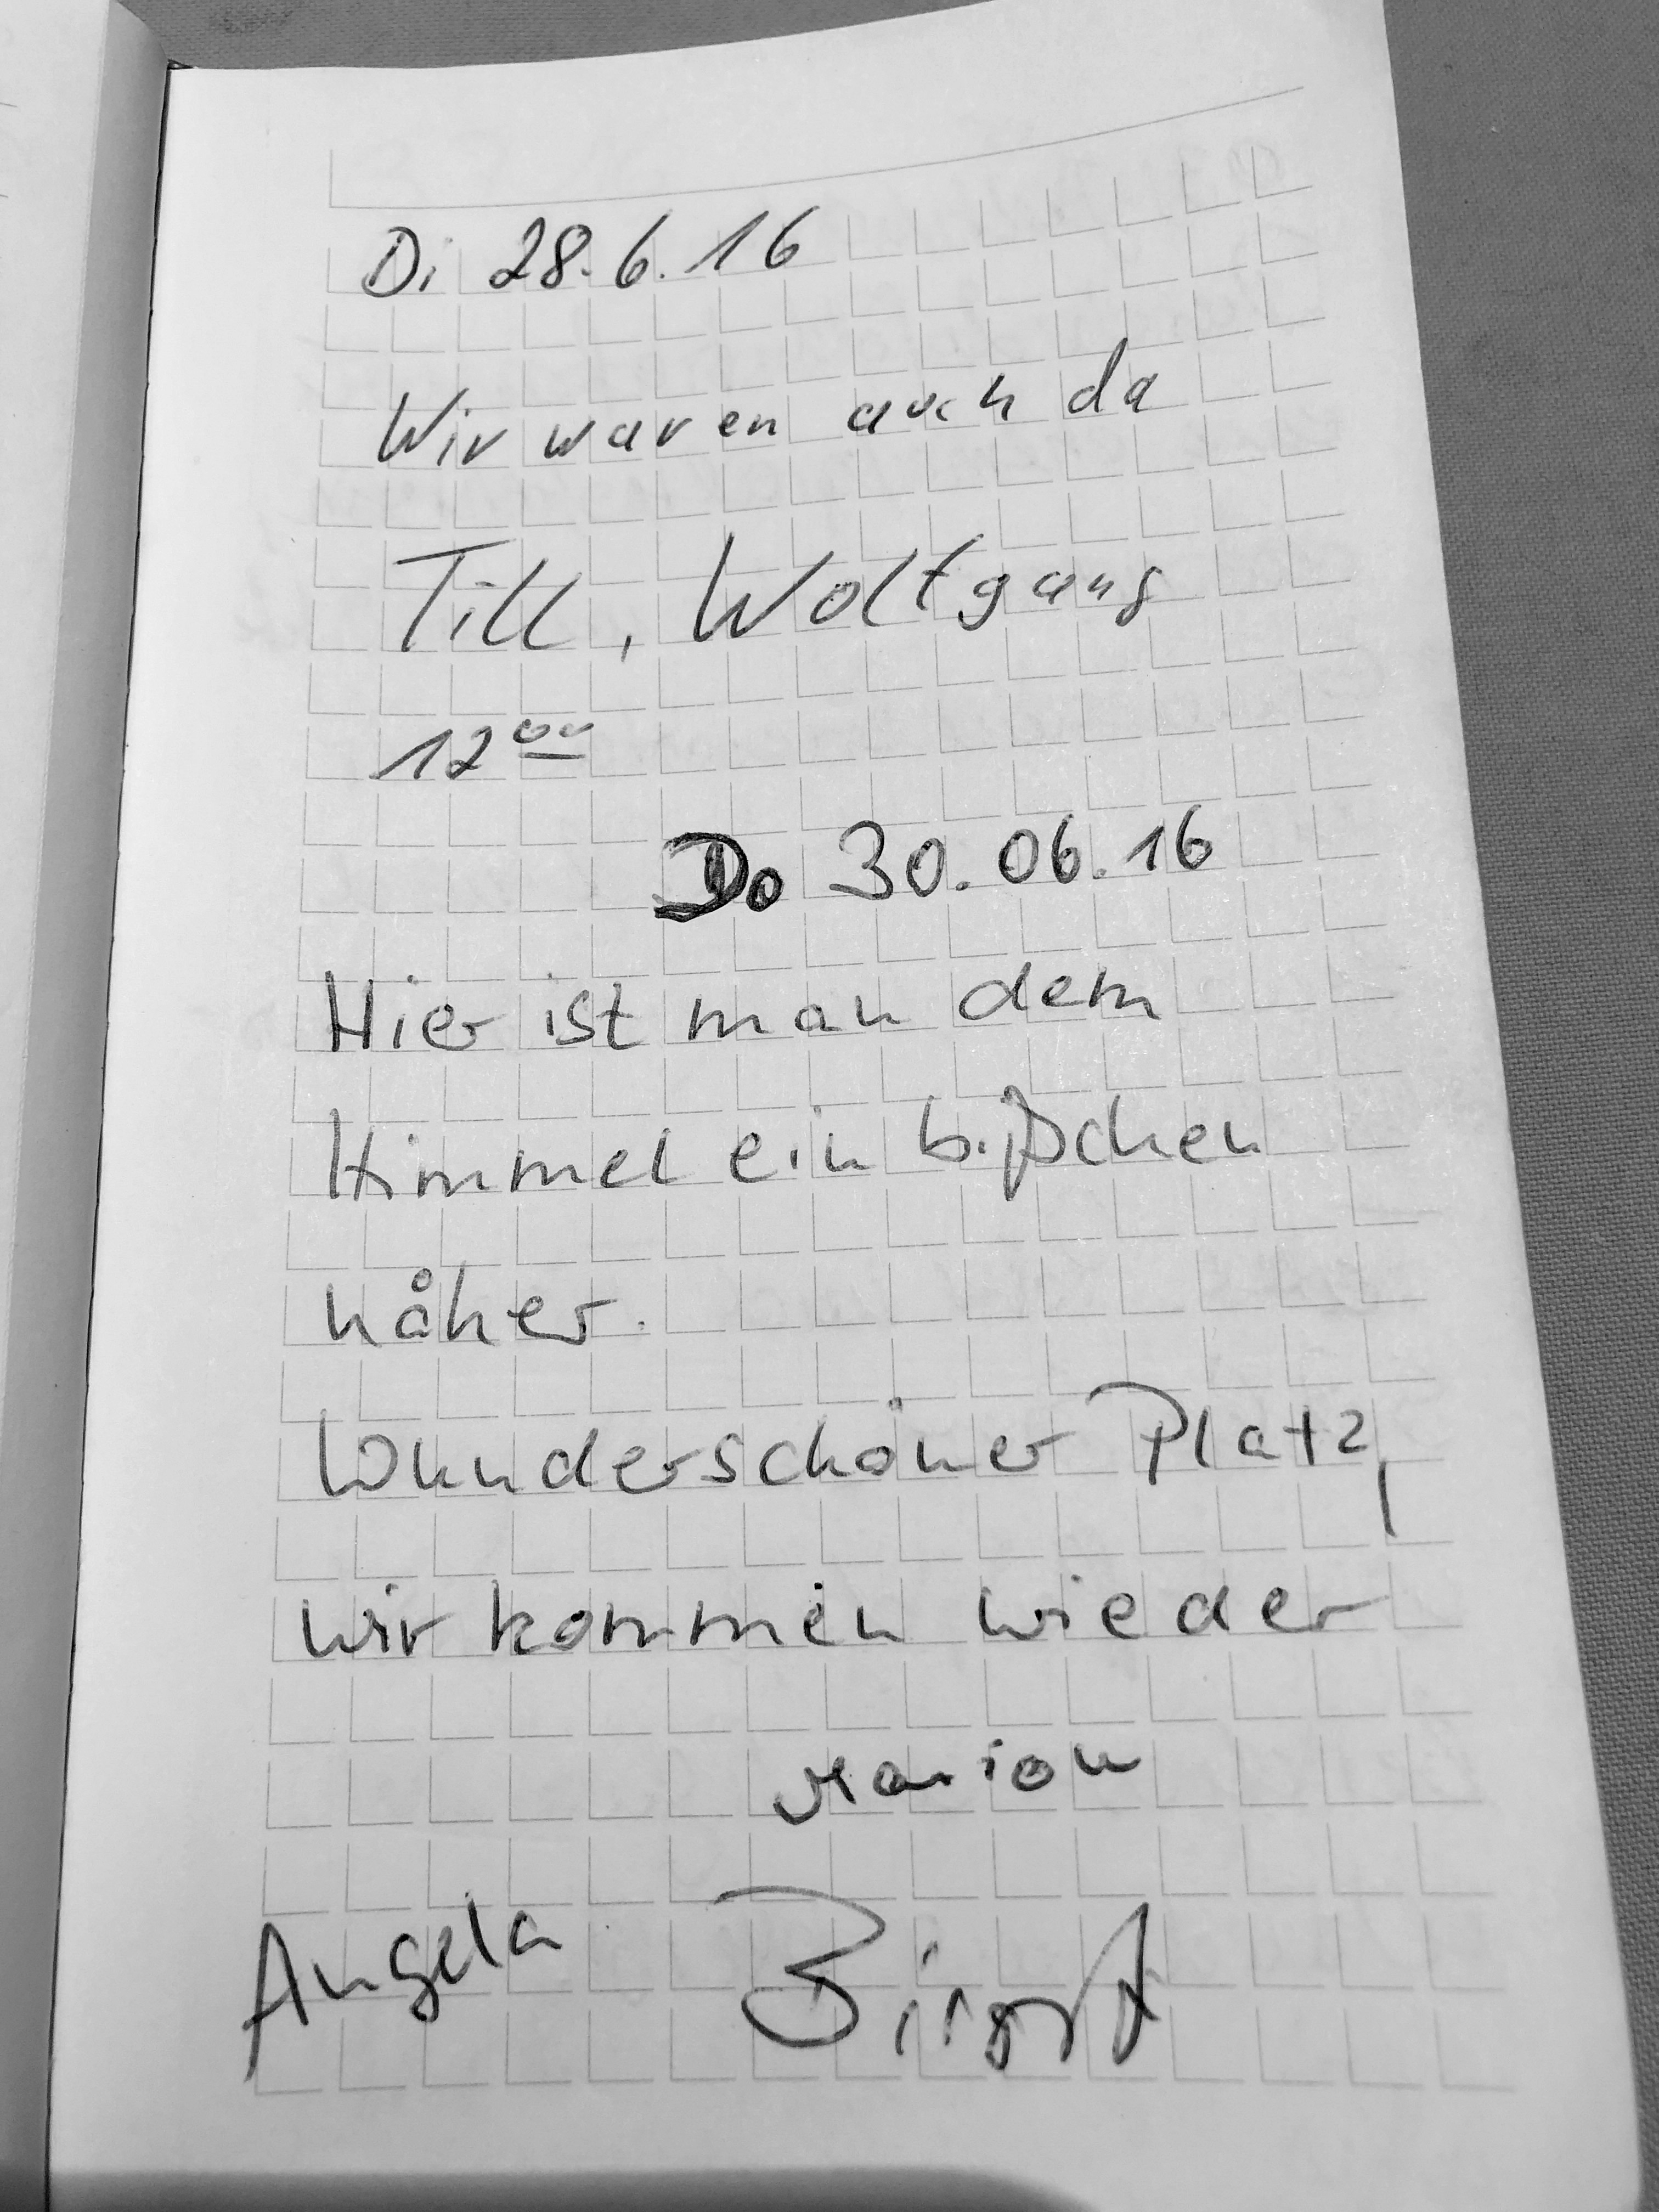 Di 28.6.16
Wir waren auch da
Till, Wolfgang
12 00
Do 30.06.16
Hier ist man dem
Himmel ein bißchen
näher.
Wunderschöner Platz,
wir kommen wieder
Marion
Angela